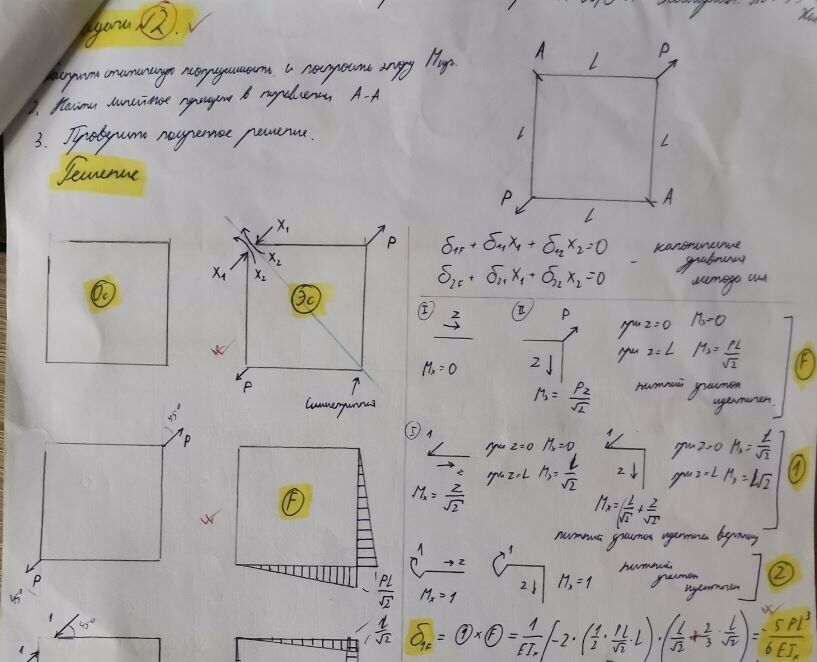 Задачи №2.
статическую неопределимость и построить эпюру Mизг.
2. Найти линейное перемещение в направлении A-A
3. Проверить полученное решение.
Решение
A
L
P
L
L
P
L
A
Ос
X₁
X₁
X₂
X₂
P
Эс
P
Симметричная
δ₁F + δ₁₁X₁ + δ₁₂X₂ = 0
δ₂F + δ₂₁X₁ + δ₂₂X₂ = 0
- канонические
уравнения
метода сил
I
z
Mx = 0
II
P
z
= Pz/√2
при z=0
при z=L
= PL/√2
нижний участок
идентичен
F
45°
P
P
45°
F
PL/√2
I
1
z
Mx = z/√2
при z=0 Mx=0
при z=L
= L/√2
1
z
Mx = L/√2 + z/√2
при z=0 Mx = L/√2
при z=L Mx = L√2
нижний участок идентичен верхнему
1
1
z
Mx = 1
1
z
Mx = 1
нижний
участок
идентичен
2
1
45°
L/√2
δ₁F = ① × Ⓕ = 1/EIx [-2·(1/2·PL/√2·L)·(L/√2 + 2/3·L/√2) = -5PL³/6EIx